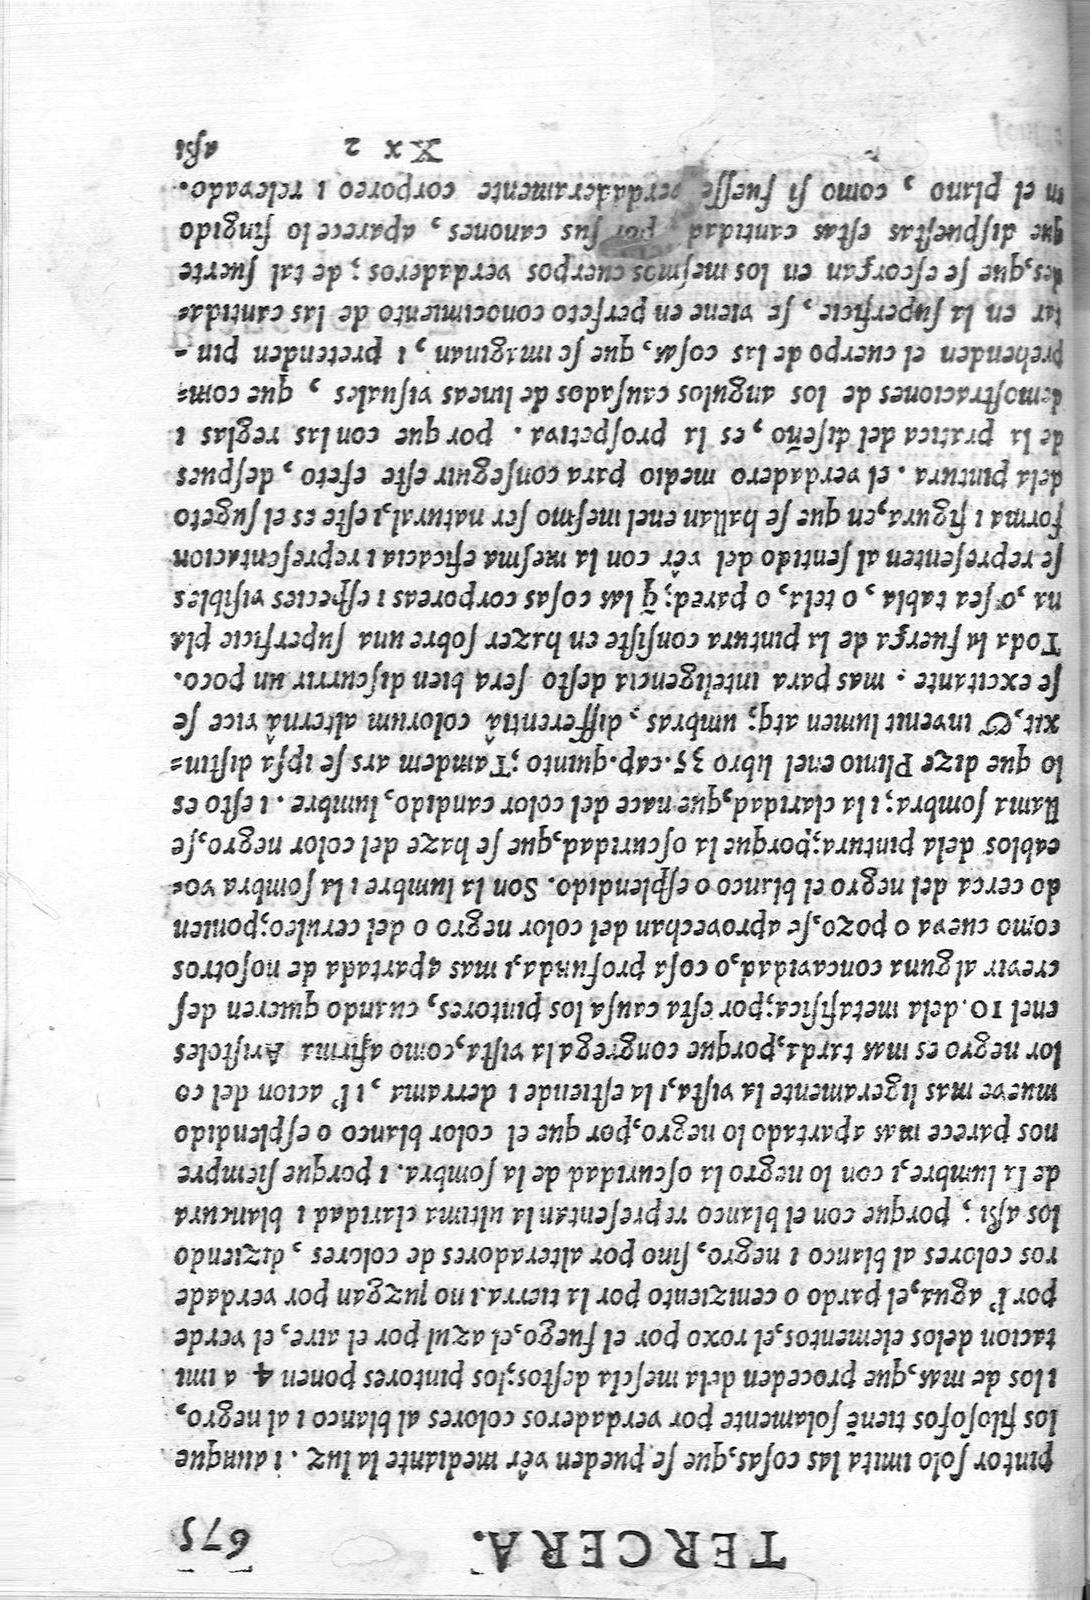 TERCERA. 675
pintor ſolo imita las coſas, que ſe pueden vêr mediante la luz. i aunque
los filoſofos tienẽ ſolamente por verdaderos colores al blanco i al negro,
i los de mas, que proceden dela meſcla deſtos; los pintores ponen 4 a imi
tacion delos elementos, el roxo por el fuego, el azul por el aire, el verde
por l' agua, el pardo o cenizíento por la tierra. i no juzgan por verdade
ros colores al blanco i negro, ſino por alteradores de colores, diziendo
los aßi; porque con el blanco repreſentan la ultima claridad i blancura
de la lumbre, i con lo negro la oſcuridad de la ſombra. i porque ſiempre
nos parece mas apartado lo negro, por que el color blanco o eſplendido
mueve mas ligeramente la viſta, i la eſtiende i derrama, i l' acion del co
lor negro es mas tarda, porque congrega la viſta, como afirma Ariſtoles
enel 10. dela metafiſica; por eſta cauſa los pintores, cuando quieren deſ
crevir alguna concavidad, o coſa profunda, i mas apartada de noſotros
como cueva o pozo, ſe aprovechan del color negro o del ceruleo; ponien
do cerca del negro el blanco o eſplendido. Son la lumbre i la ſombra vo=
cablos dela pintura; porque la oſcuridad, que ſe haze del color negro, ſe
llama ſombra; i la claridad, que nace del color candido, lumbre. i eſto es
lo que dize Plinio enel libro 35. cap. quinto; Tamdem ars ſe ipſa diſtin=
xit, & invenit lumen atq; umbras, differentiâ colorum alternâ vice ſe
ſe excitante: mas para inteligencia deſto ſera bien diſcurrir un poco.
Toda la fuerça de la pintura conſiſte en hazer ſobre una ſuperficie pla
na, o ſea tabla, o tela, o pared; q̃ las coſas corporeas i eſpecies viſibles
ſe repreſenten al ſentido del vêr con la meſma eficacia i repreſentacion
forma i figura, en que ſe hallan enel meſmo ſer natural, i eſte es el ſugeto
dela pintura. el verdadero medio para conſeguir eſte efeto, deſpues
de la pratica del diſeño, es la proſpetiva. porque con las reglas i
demoſtraciones de los angulos cauſados de lineas viſuales, que com=
prehenden el cuerpo de las coſas, que ſe imaginan, i pretenden pin-
tar en la ſuperficie, ſe viene en perfeto conocimiento de las cantida=
des, que ſe eſcorçan en los meſmos cuerpos verdaderos; de tal ſuerte
que diſpueſtas eſtas cantidad por ſus canones, aparece lo fingido
en el plano, como ſi fueſſe verdaderamente corporeo i relevado.
Xx 2 aßi